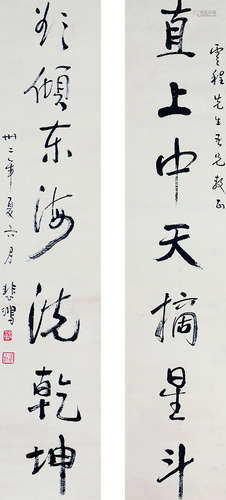 雲程先生吾兄教正
直上中天摘星斗
欲傾东海洗乾坤
卅二年夏六月
悲鴻